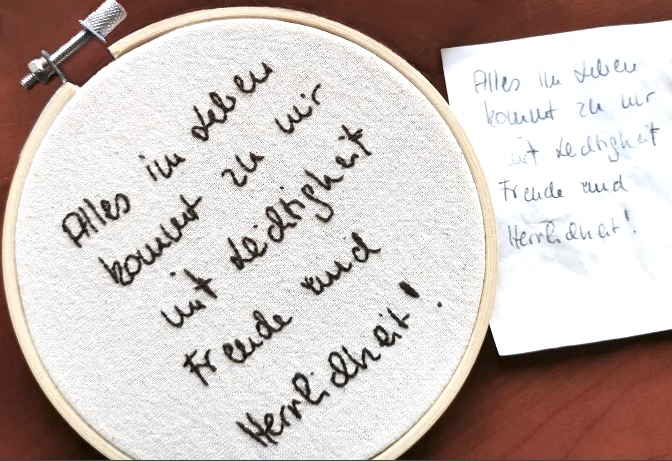 Alles im Leben
kommt zu mir
mit Leichtigkeit
Freude und
Herrlichkeit!
Alles im Leben
kommt zu mir
mit Leichtigkeit
Freude und
Herrlichkeit!